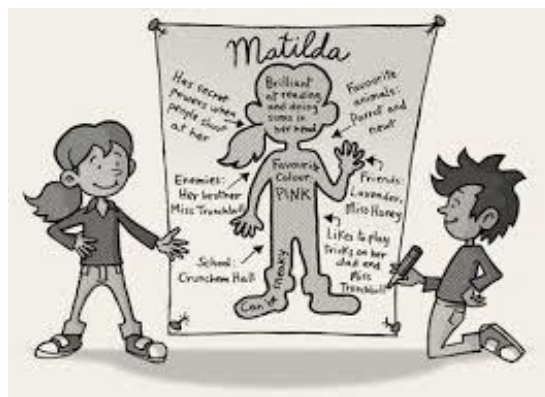 Matilda
Has secret
powers when
people shout
at her
Brilliant
at reading
and doing
sums in
her head
Favourite
animals:
Parrot and
newt
Enemies:
Her brother
Miss Trunchbull
Favourite
Colour
PINK
Friends:
Lavender,
Miss Honey
School:
Crunchem Hall
Likes to play
tricks on her
dad and
Miss
Trunchbull
Can be
sneaky